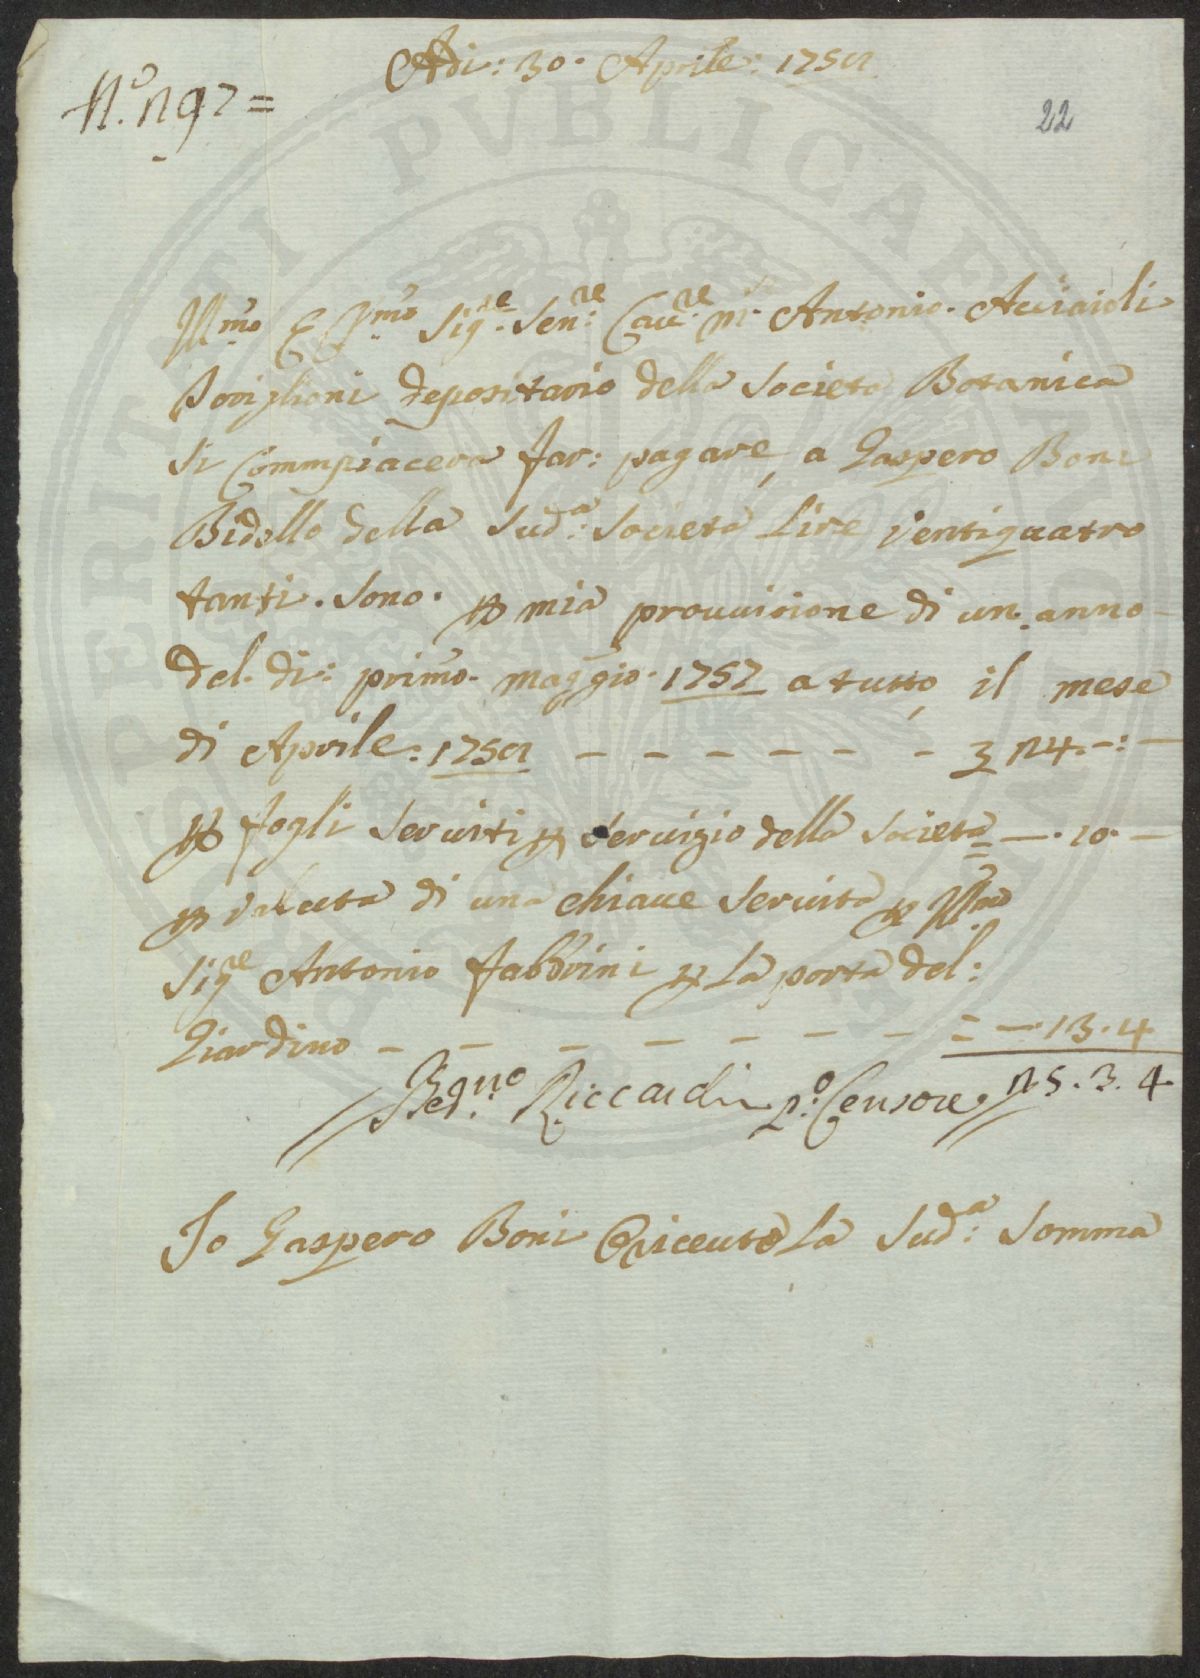 PROSPERITATI PVBLICAE AVGENDAE
Adi: 30. Aprile: 1758
N.° 297 =
22
Ill.mo E C.mo Sig.re Sen.re Cau.re m.° Antonio. Acciaioli
Toriglioni depositario della Societa Botanica
si Commpiacera far: pagare a Gaspero Boni
Bidello della Sud.a Societa Lire Ventiquatro
tanti. sono. p mia prouuisione di un. anno
del. di: primo. maggio. 1757 a tutto il mese
di Aprile: 1758 - - - - - - - £ 24. - : -
p fogli seruiti p seruizio della Societa = - . 10. -
p Valuta di una chiaue seruita p Ill.mo
Sig.re Antonio fabbrini p La porta del:
Giardino - - - - - - - - = - . 13 . 4
Bed.no Riccardi p.° Censore // 25 . 3 . 4
Io Gaspero Boni Riceuto La Sud.a Somma